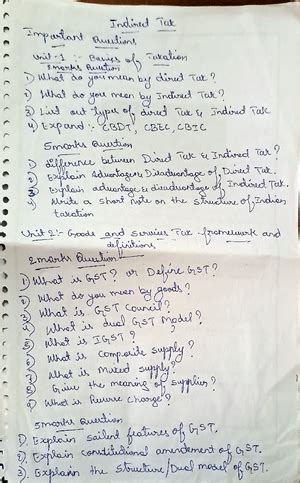 Indirect Tax
Important Questions
Unit-1 :- Basics of Taxation
2marks Question
1) What do you mean by direct Tax?
2) What do you mean by Indirect Tax?
3) List out types of direct Tax & Indirect Tax
4) Expand :- CBDT, CBEC, CBIC
5marks Question
1) difference between Direct Tax & Indirect Tax?
2) Explain Advantages & Disadvantage of Direct Tax.
3) Explain advantage & disadvantage of Indirect Tax.
Write a short note on the structure of Indian
taxation
Unit 2:- Goods and Services Tax framework and
definitions
2marks Question:-
1) What is GST? or Define GST?
2) What do you mean by goods?
3) What is GST Council?
4) What is dual GST Model?
5) What is IGST?
6) What is composite supply?
7) What is Mixed supply?
8) Give the meaning of supplier?
9) What is Reverse Charge?
5marks Question
1). Explain sailent features of GST.
2). Explain constitutional amendement of GST.
3). Explain the Structure/Dual model of GST.